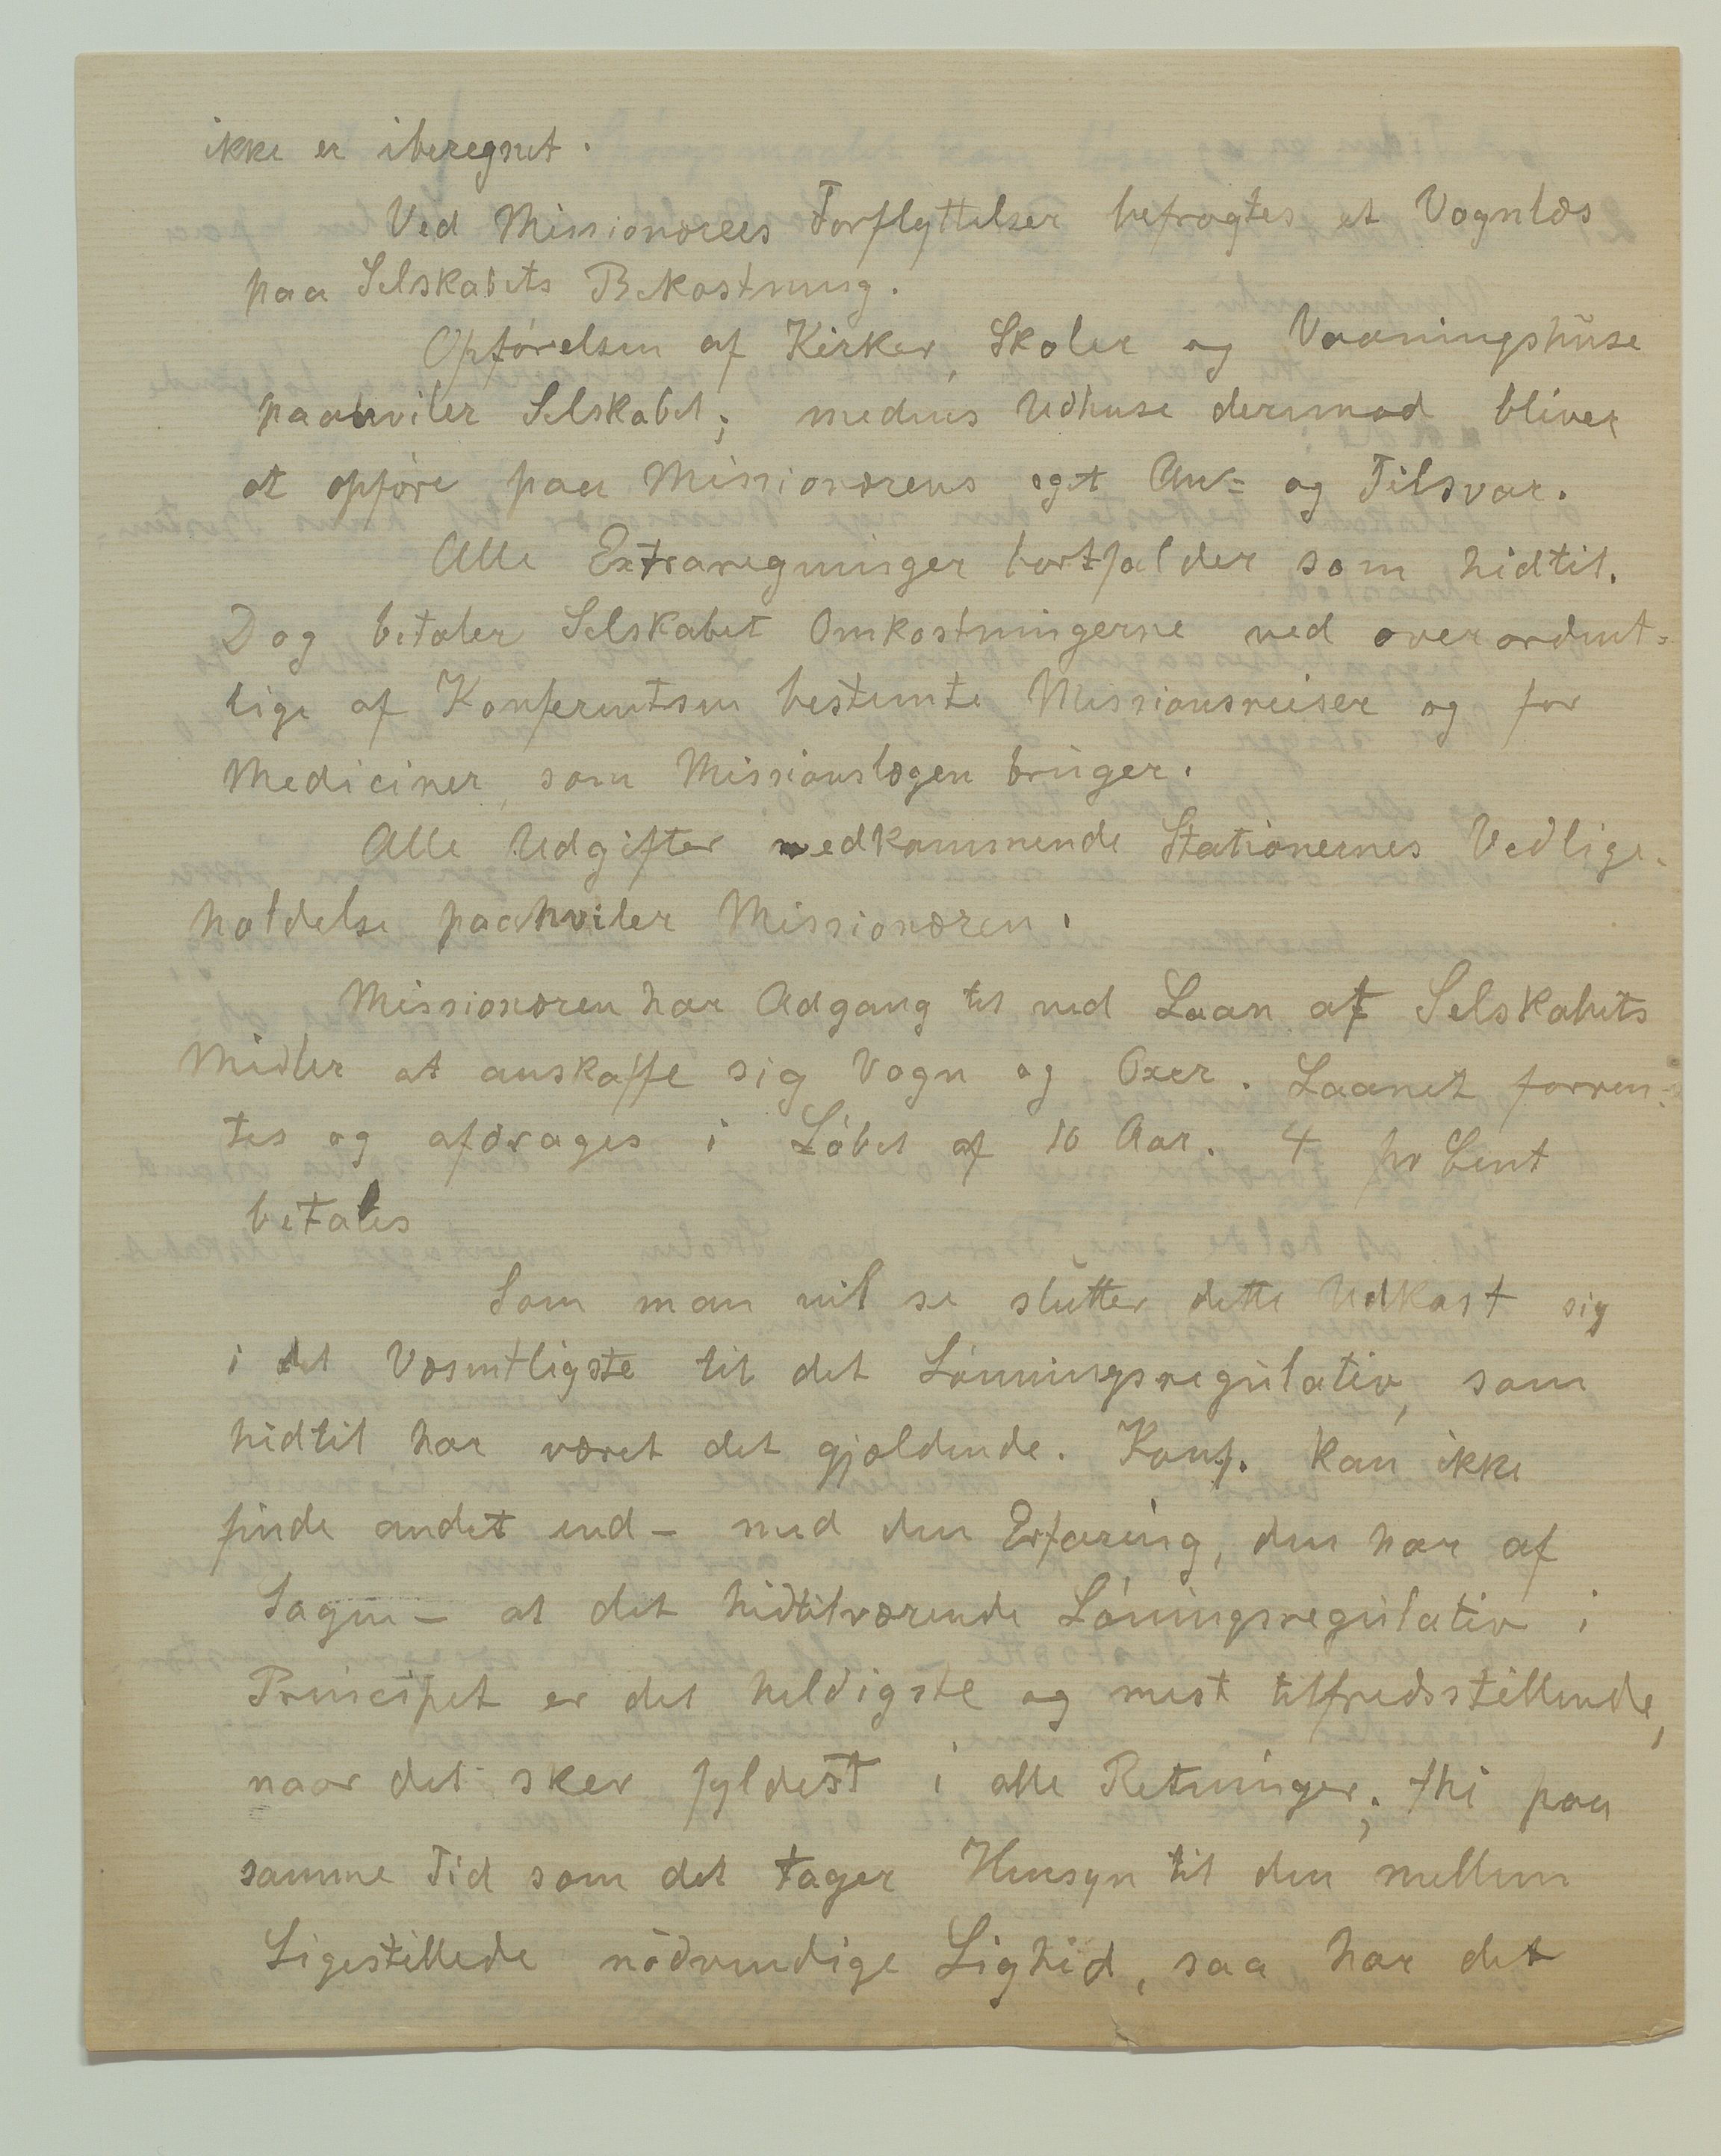 ikke er iberegnet.
Ved Missionærers Forflyttelser befragtes et Vognlæs
paa Selskabets Bekostning.
Opførelsen af Kirker, Skoler og Vaaningshuse
paahviler Selskabet; medens Udhuse derimod bliver
at opføre paa Missionærens eget An= og Tilsvar.
Alle Extraregninger bortfalder som hidtil.
Dog betaler Selskabet Omkostningerne ved overordent=
lige af Konferentsen bestemte Missionsreiser og for
Mediciner, som Missionslægen bruger.
Alle Udgifter vedkommende Stationernes Vedlige-
holdelse paahviler Missionæren.
Missionæren har Adgang til ved Laan af Selskabets
Midler at anskaffe sig Vogn og Oxer. Laanet forren-
tes og afdrages i Løbet af 10 Aar. 4 pr Cent
betales
Som man vil se slutter dette Udkast sig
i det Væsentligste til det Lønningsregulativ, som
hidtil har været det gjældende. Konf. kan ikke
finde andet end – med den Erfaring, den har af
Sagen – at det hidtilværende Løningsregulativ i
Principet er det heldigste og mest tilfredsstillende,
naar det sker fyldest i alle Retninger; thi paa
samme Tid som det tager Hensyn til den mellem
Ligestillede nødvendige Lighed, saa har det